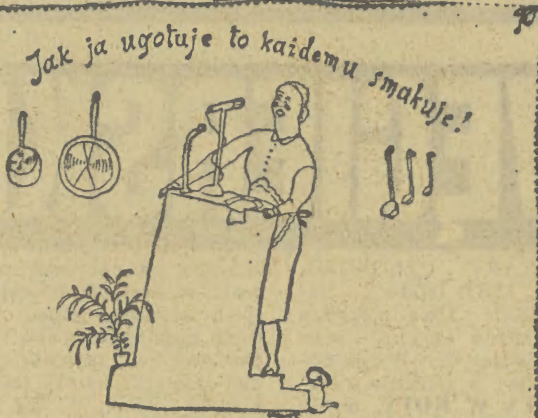 Jak ja ugotuje to kaidemu smakuje!